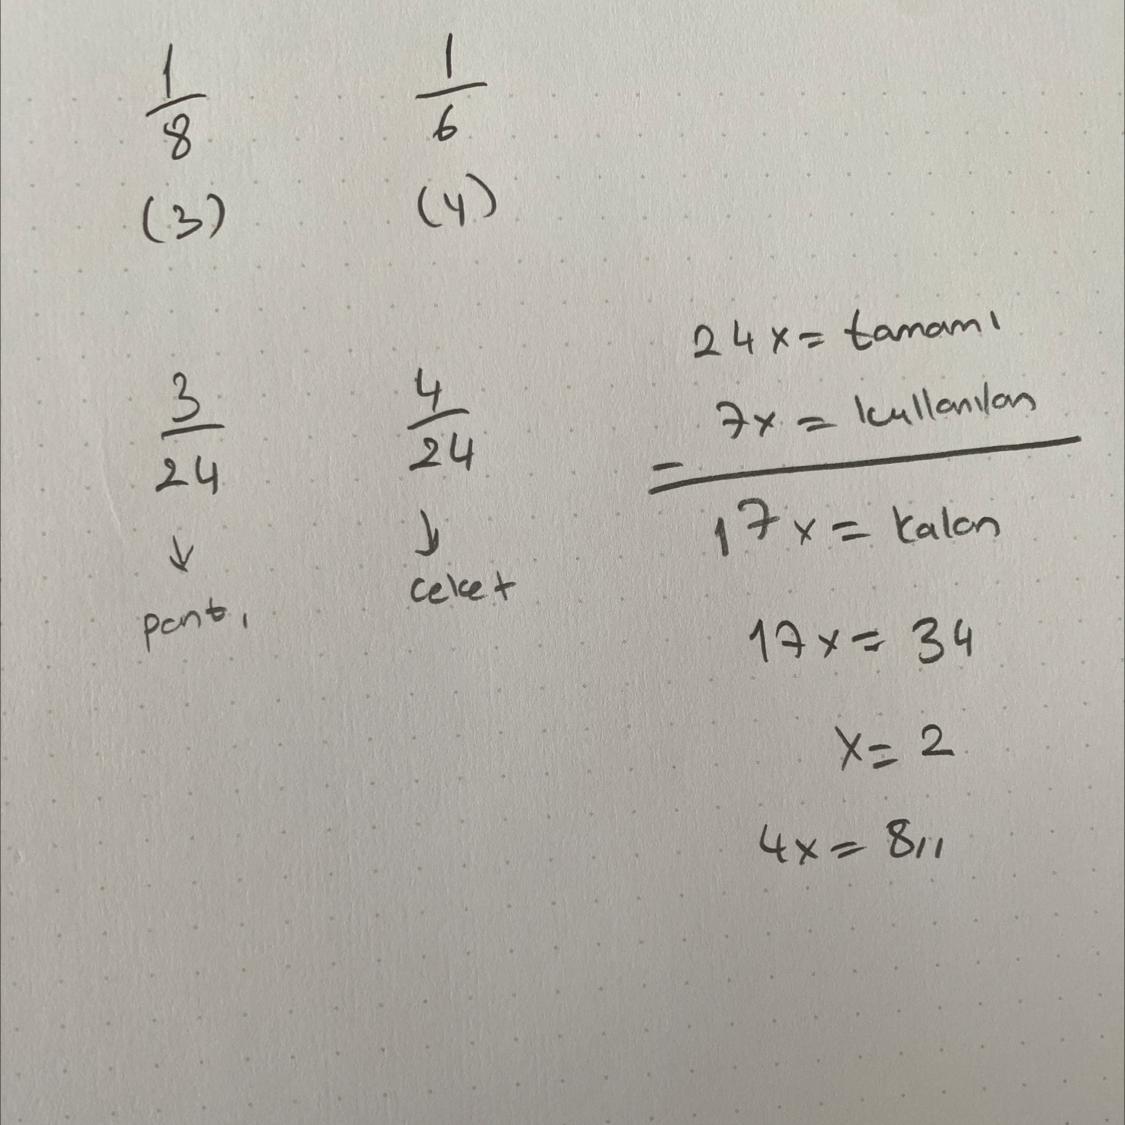 1/8 1/6
(3) (4)
3/24 4/24
↓ ↓
pant, ceket
24x = tamamı
7x = kullanılan
-
17x = kalan
17x = 34
x = 2
4x = 8,,